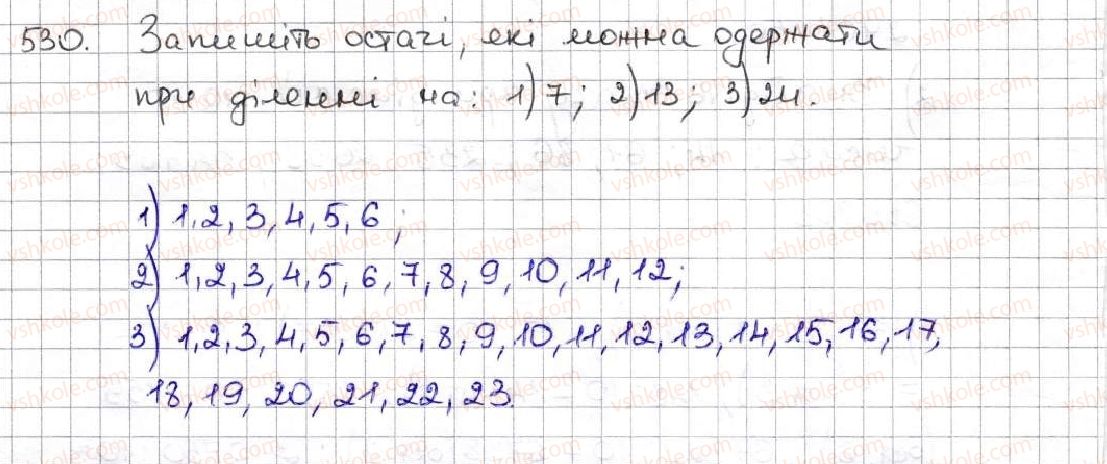 530. Запишіть остачі, які можна одержати
при діленні на: 1) 7; 2) 13; 3) 24.
1) 1, 2, 3, 4, 5, 6;
2) 1, 2, 3, 4, 5, 6, 7, 8, 9, 10, 11, 12;
3) 1, 2, 3, 4, 5, 6, 7, 8, 9, 10, 11, 12, 13, 14, 15, 16, 17,
18, 19, 20, 21, 22, 23.